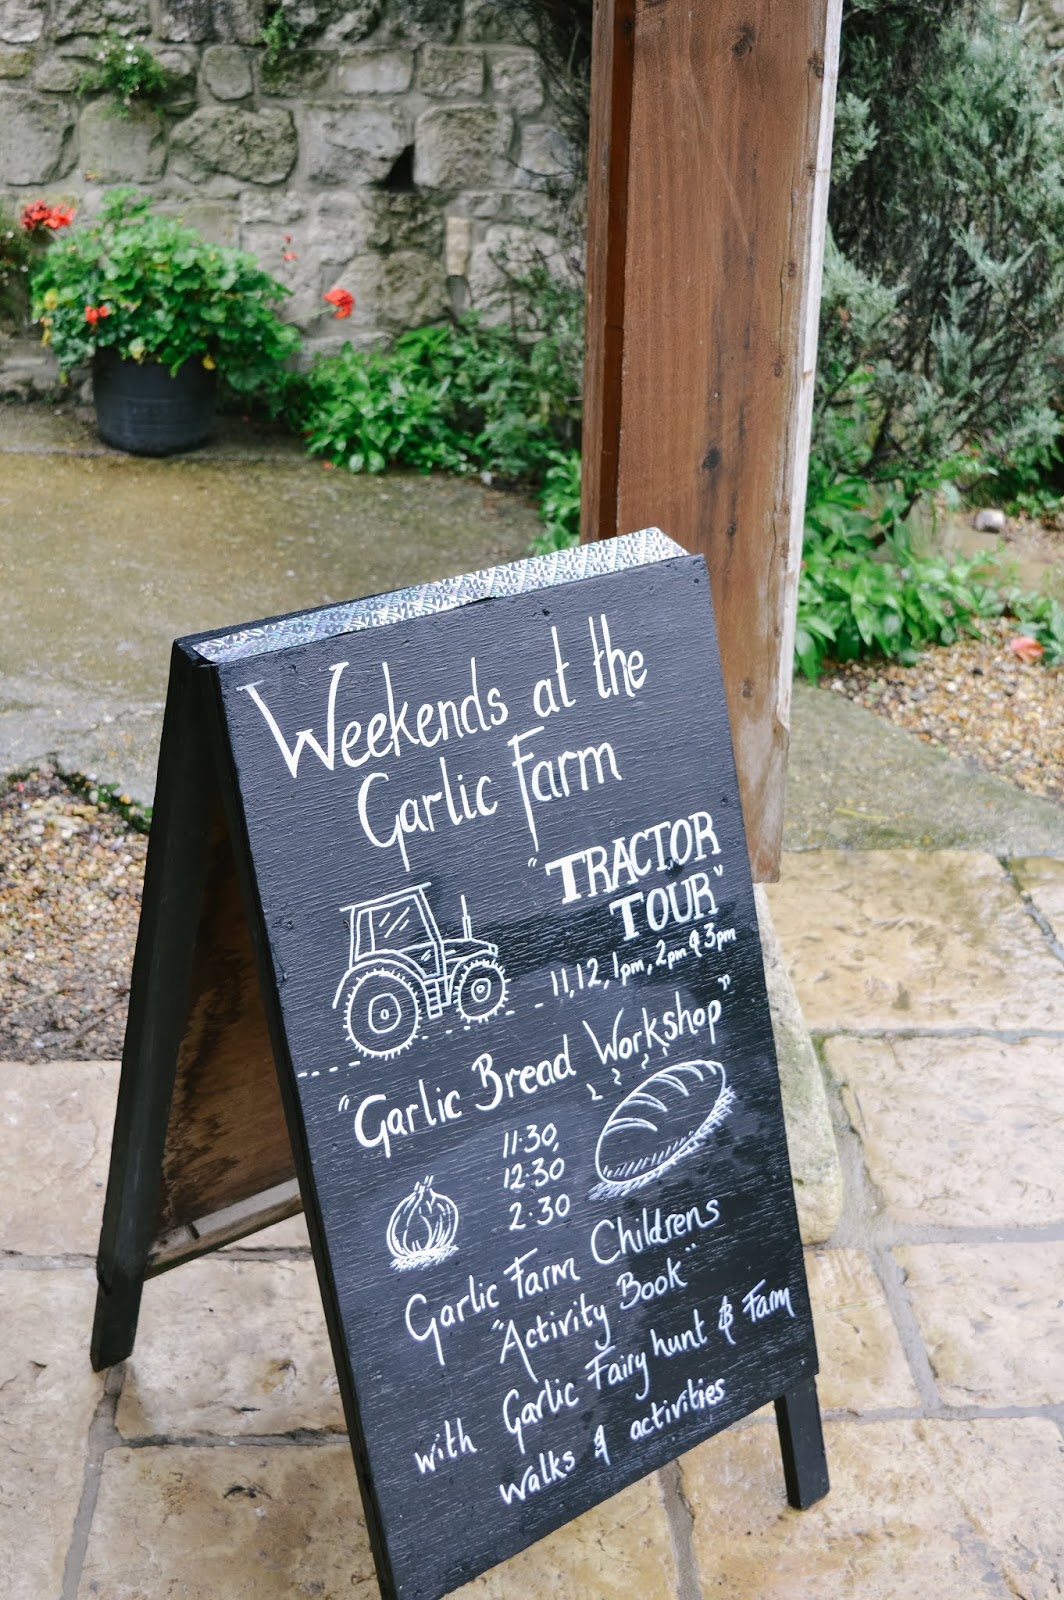 Weekends at the
Garlic Farm
"TRACTOR
TOUR"
11, 12, 1pm, 2pm & 3pm
"Garlic Bread Workshop"
11.30
12.30
2.30
Garlic Farm Childrens
"Activity Book"
with Garlic Fairy hunt & Farm
walks & activities